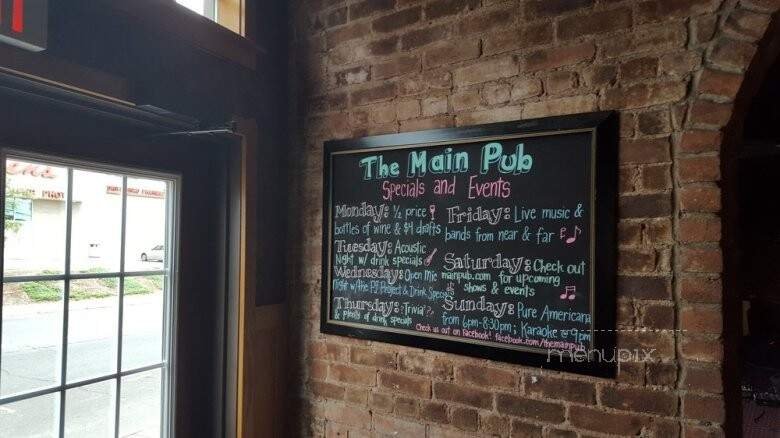 The Main Pub
Specials and Events
Monday: 1/2 price
bottles of wine & $4 drafts
Tuesday: Acoustic
Night w/ drink specials
Wednesday: Open Mic
Night w/ the PJ Project & Drink Specials
Thursday: Trivia
& plenty of drink specials
Friday: Live music &
bands from near & far
Saturday: Check out
mainpub.com for upcoming
shows & events
Sunday: Pure Americana
from 6pm-8:30pm; Karaoke @ 9pm
Check us out on Facebook! facebook.com/themainpub
menupix